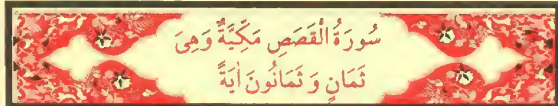 سُورَةُ الْقَصَصِ مَكِّيَّةٌ وَهِىَ
ثَمَانٍ وَ ثَمَانُونَ اٰيَةً